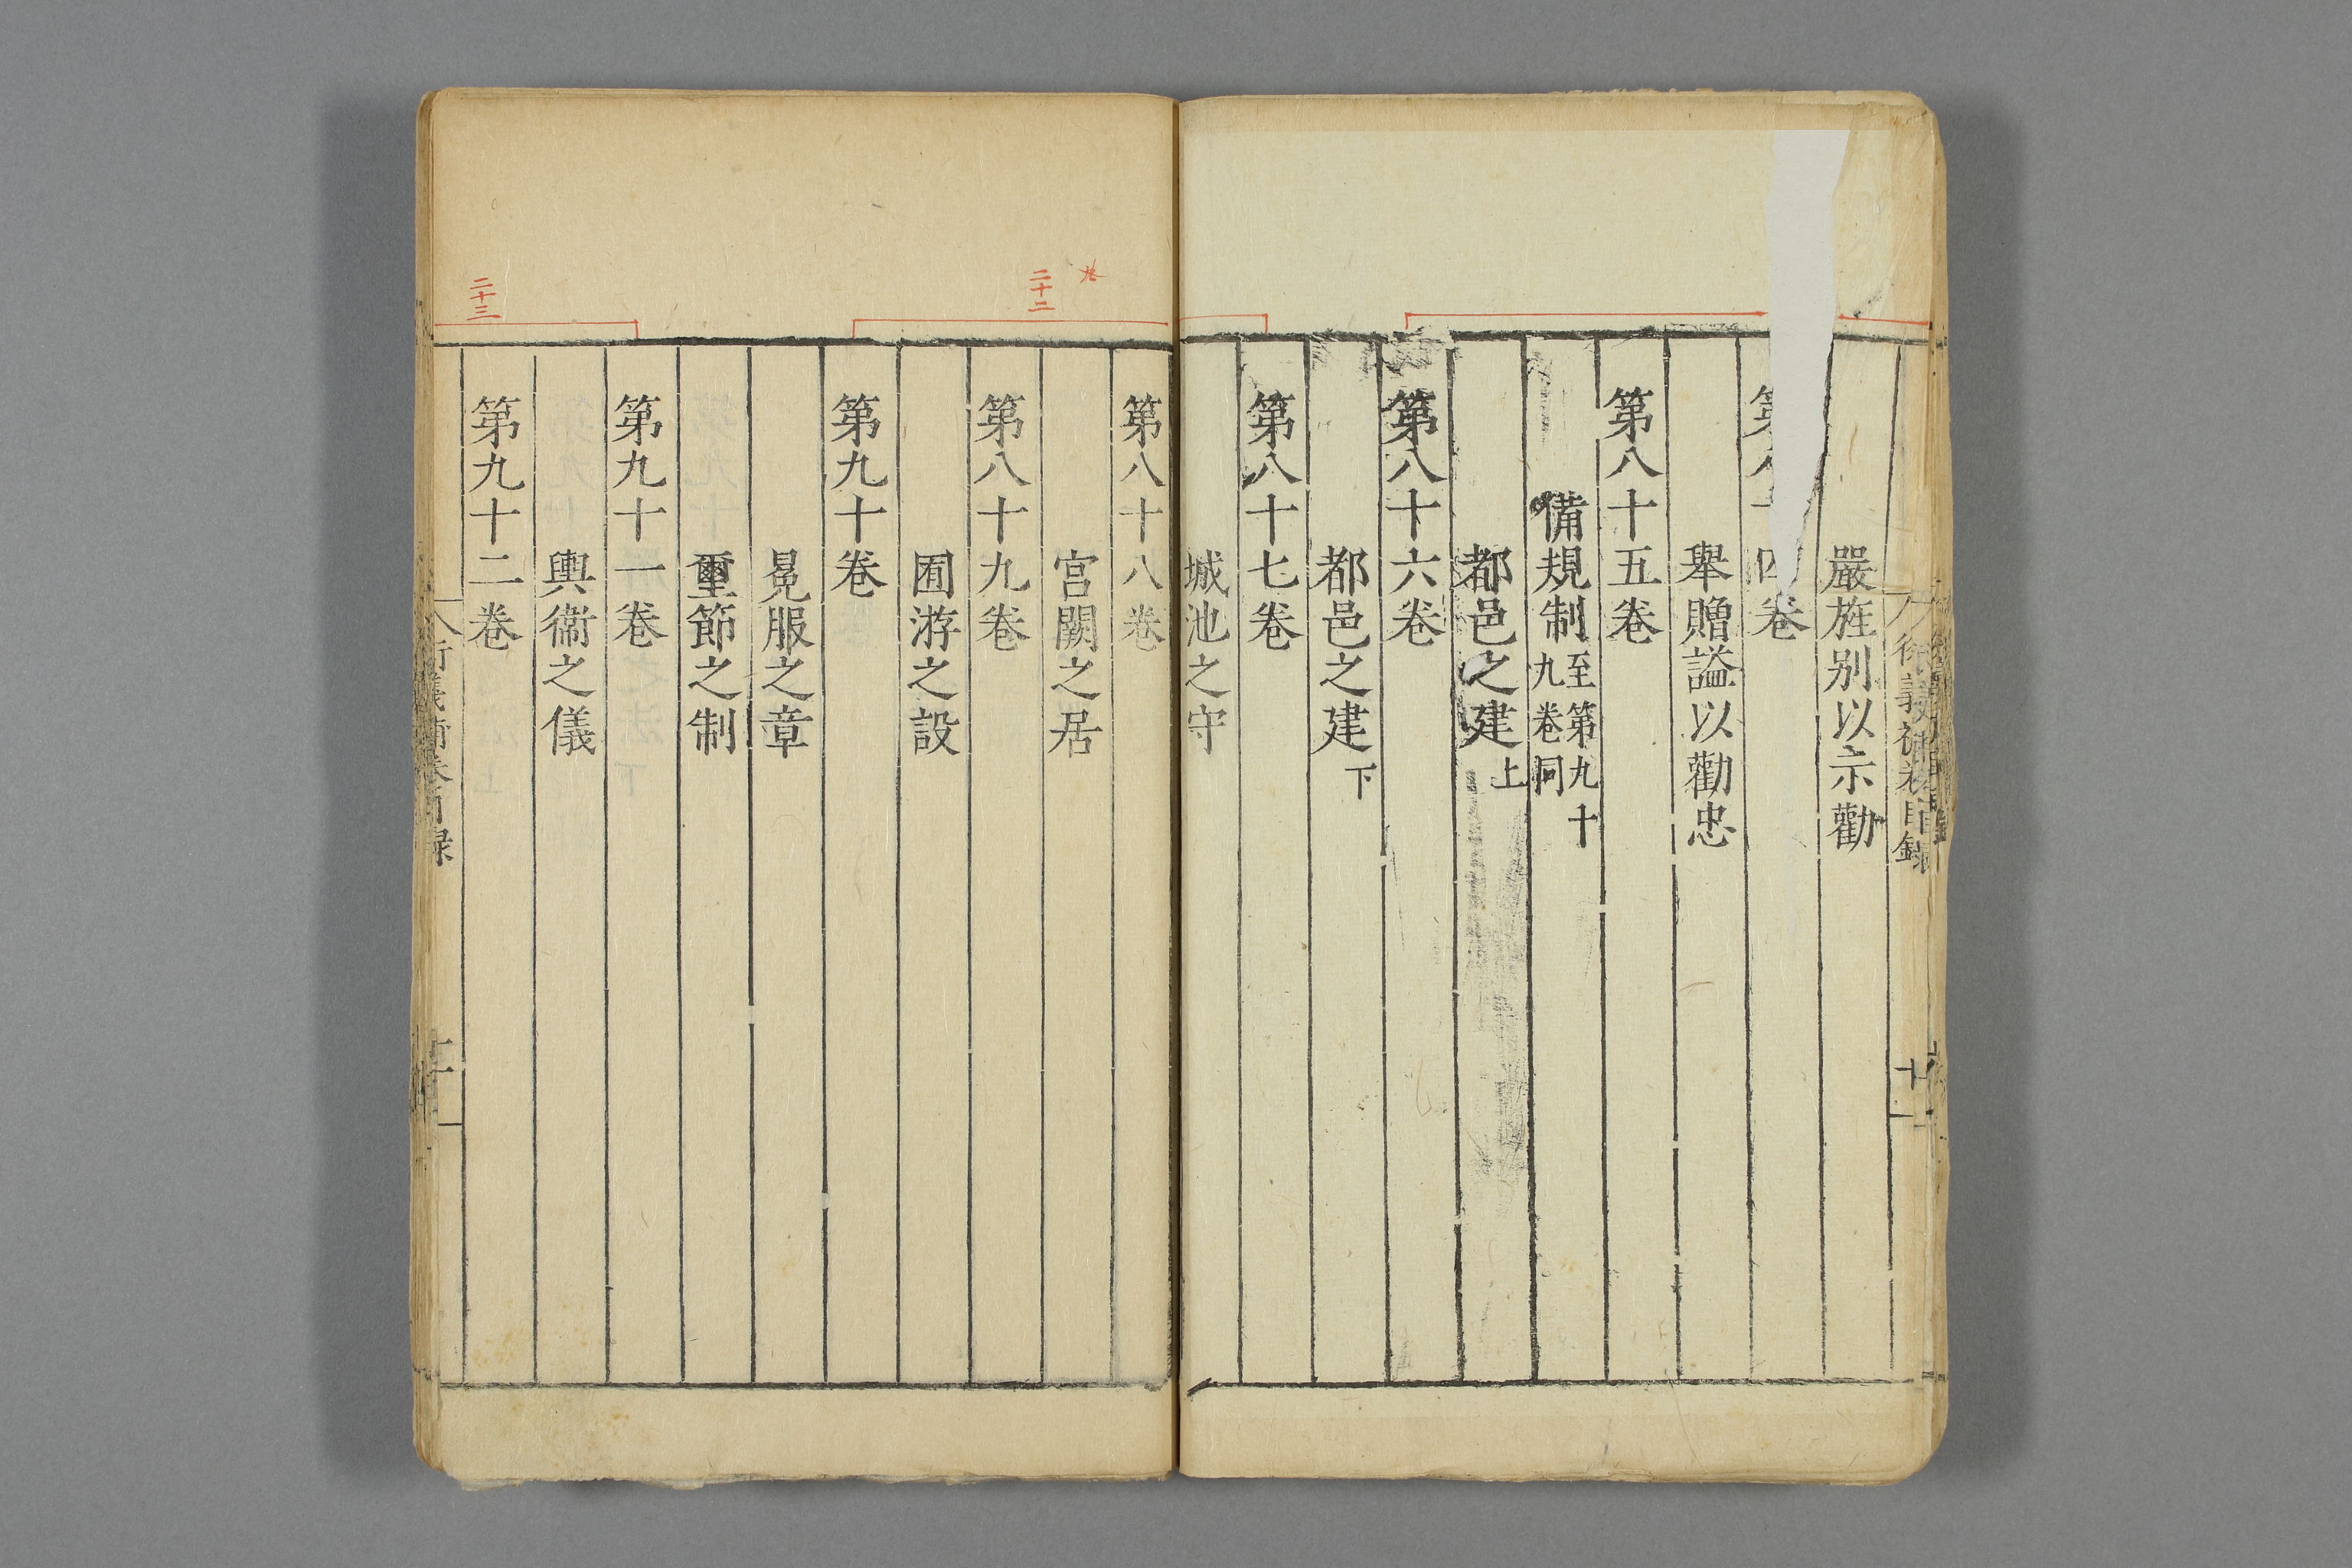 嚴旌别以示勸
四卷
舉贈謚以勸忠
第八十五卷
備規制至第九十九卷同
都邑之建上
第八十六卷
都邑之建下
第八十七卷
城池之守
第八十八卷
宮闕之居
第八十九卷
囿游之設
第九十卷
冕服之章
璽節之制
第九十一卷
輿衞之儀
第九十二卷
二十二
二十三